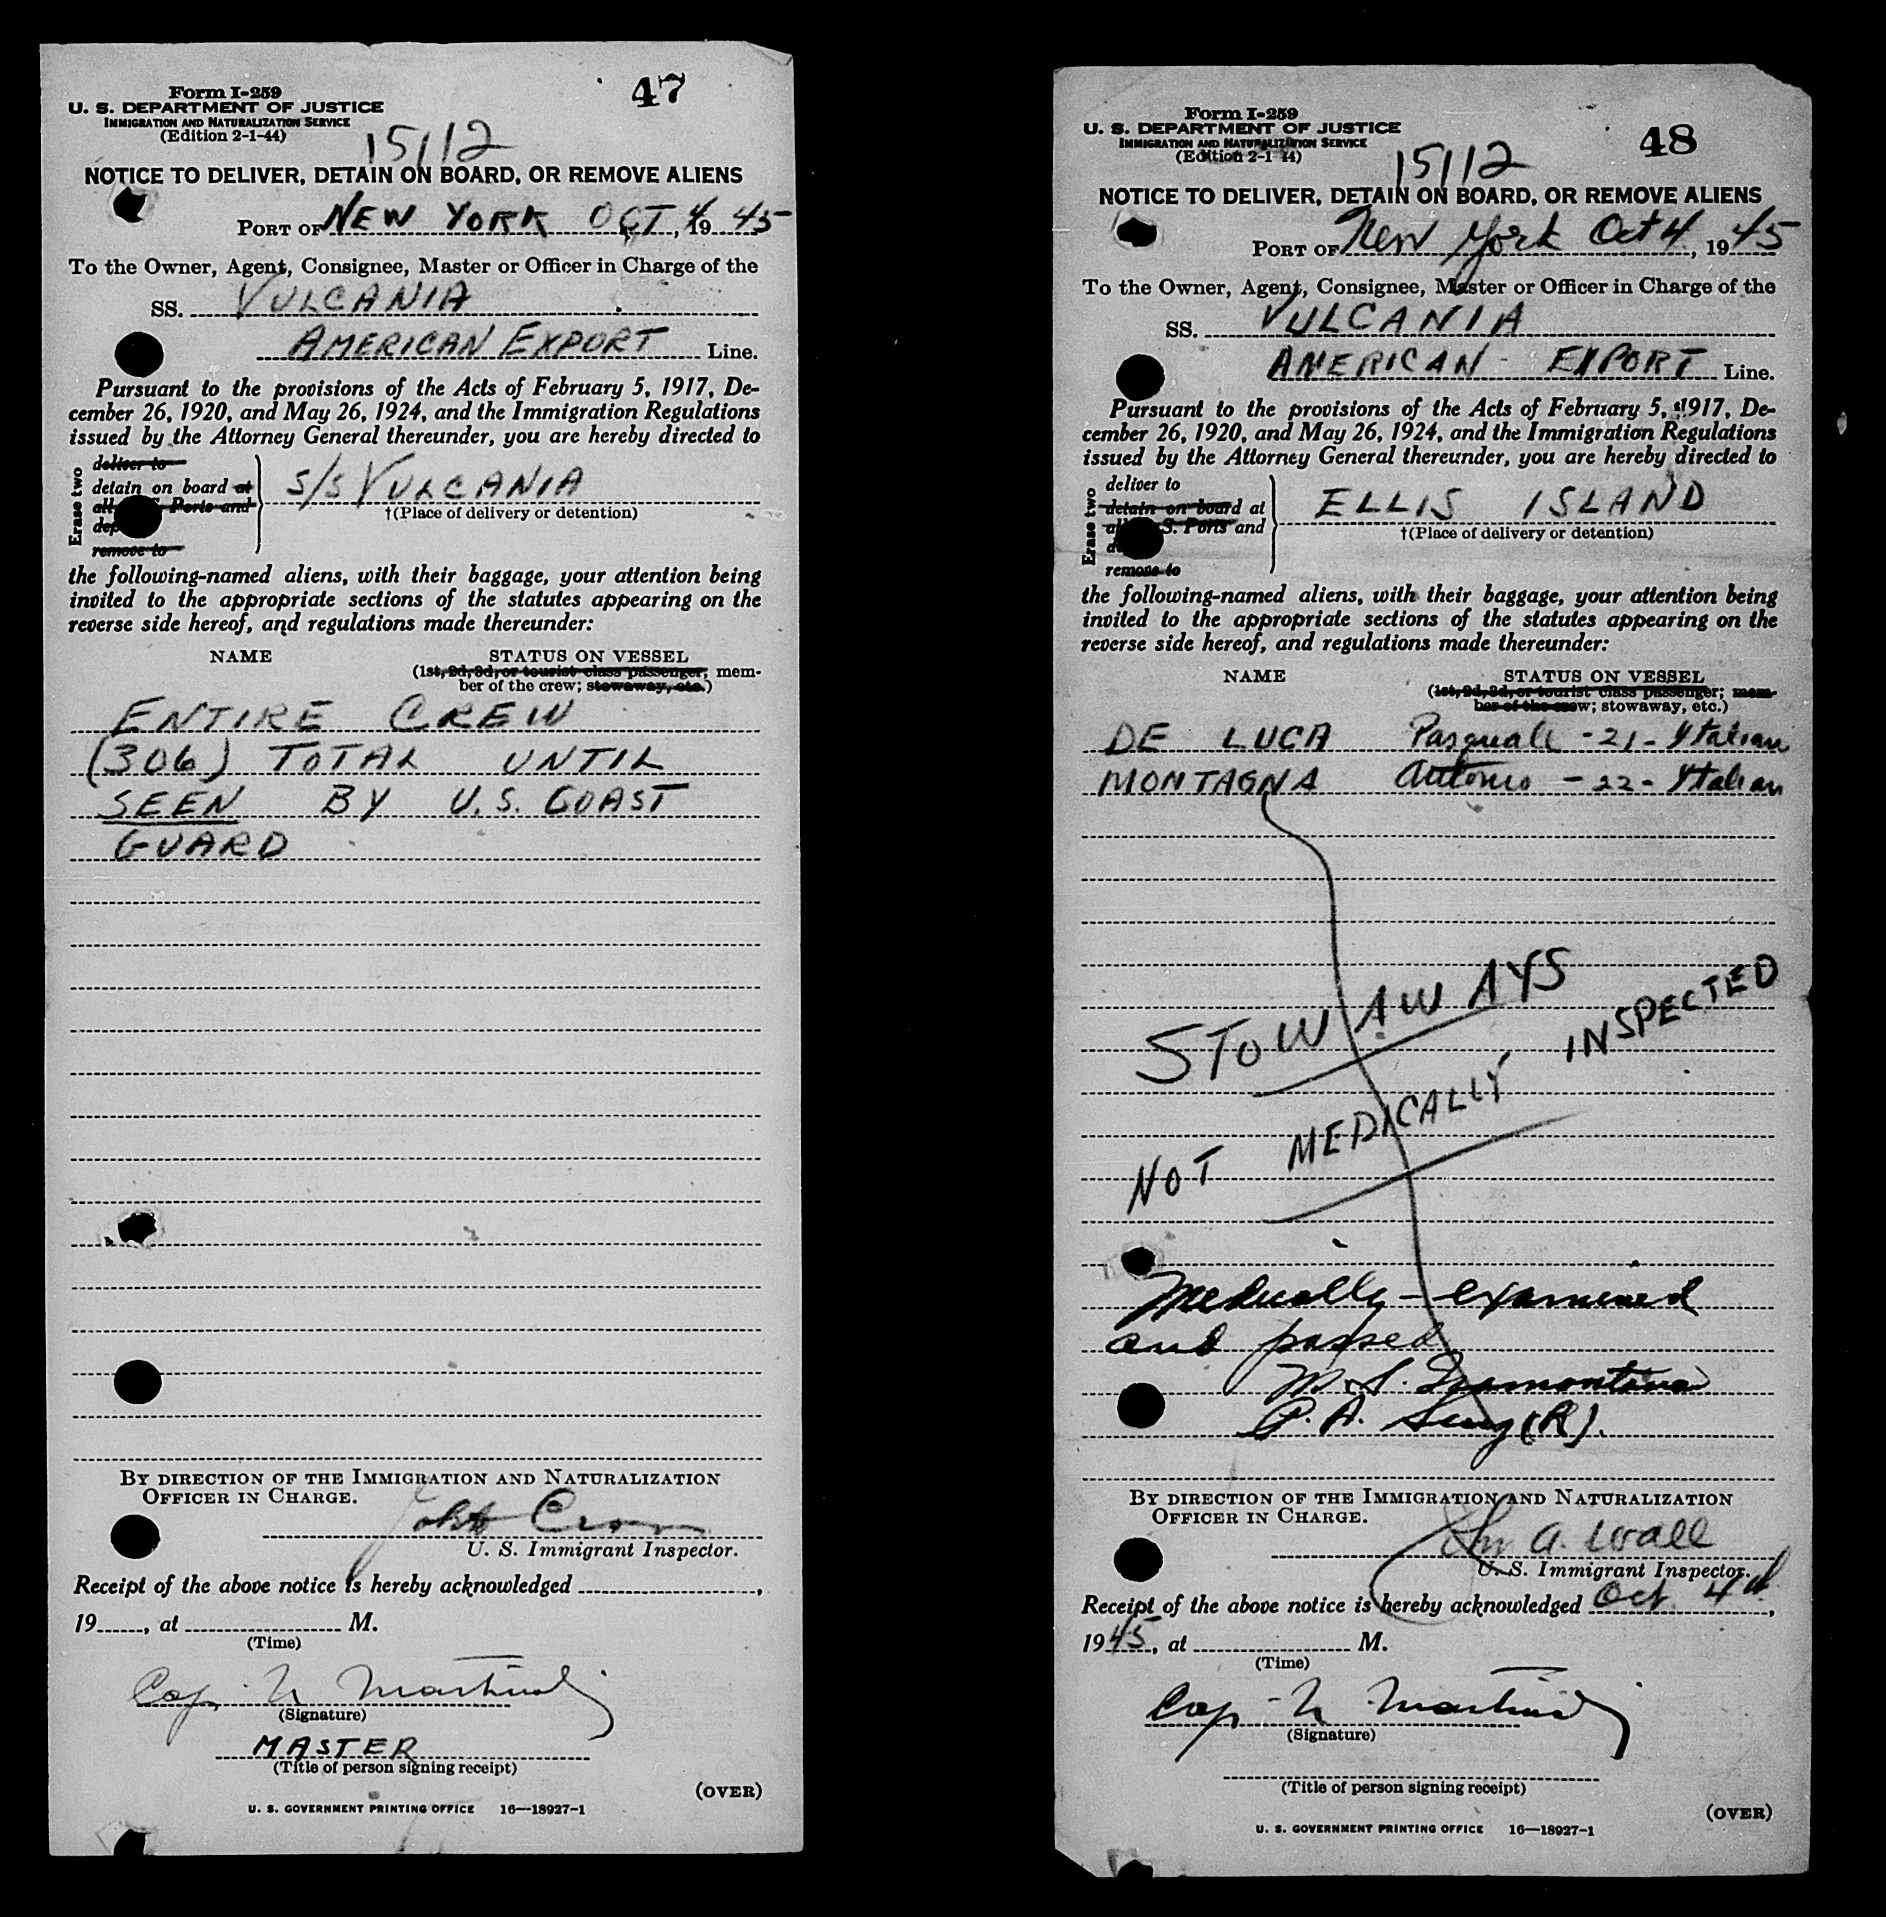 Form I-259
47
U. S. DEPARTMENT OF JUSTICE
IMMIGRATION AND NATURALIZATION SERVICE
(Edition 2-1-44)
15112
NOTICE TO DELIVER, DETAIN ON BOARD, OR REMOVE ALIENS
PORT OF NEW YORK OCT 4, 1945
To the Owner, Agent, Consignee, Master or Officer in Charge of the
SS. VULCANIA
AMERICAN EXPORT Line.
Pursuant to the provisions of the Acts of February 5, 1917, De-
cember 26, 1920, and May 26, 1924, and the Immigration Regulations
issued by the Attorney General thereunder, you are hereby directed to
Erase two
deliver to
detain on board at
all S. Ports and
remove to
S/S VULCANIA
†(Place of delivery or detention)
the following-named aliens, with their baggage, your attention being
invited to the appropriate sections of the statutes appearing on the
reverse side hereof, and regulations made thereunder:
NAME STATUS ON VESSEL
(1st, 2d, 3d, or tourist class passenger; mem-
ber of the crew; stowaway, etc.)
ENTIRE CREW
(306) TOTAL UNTIL
SEEN BY U.S. COAST
GUARD
BY DIRECTION OF THE IMMIGRATION AND NATURALIZATION
OFFICER IN CHARGE.
John
U. S. Immigrant Inspector.
Receipt of the above notice is hereby acknowledged ,
19 , at M.
(Time)
Cap. N Martinoli
(Signature)
MASTER
(Title of person signing receipt)
(OVER)
U. S. GOVERNMENT PRINTING OFFICE 16—18927-1
Form I-259
48
U. S. DEPARTMENT OF JUSTICE
IMMIGRATION AND NATURALIZATION SERVICE
(Edition 2-1-44)
15112
NOTICE TO DELIVER, DETAIN ON BOARD, OR REMOVE ALIENS
PORT OF New York Oct 4, 1945
To the Owner, Agent, Consignee, Master or Officer in Charge of the
SS. VULCANIA
AMERICAN - EXPORT Line.
Pursuant to the provisions of the Acts of February 5, 1917, De-
cember 26, 1920, and May 26, 1924, and the Immigration Regulations
issued by the Attorney General thereunder, you are hereby directed to
Erase two
deliver to
detain on board at
all S. Ports and
remove to
ELLIS ISLAND
†(Place of delivery or detention)
the following-named aliens, with their baggage, your attention being
invited to the appropriate sections of the statutes appearing on the
reverse side hereof, and regulations made thereunder:
NAME STATUS ON VESSEL
(1st, 2d, 3d, or tourist class passenger; mem-
ber of the crew; stowaway, etc.)
DE LUCA Pasquale - 21 - Italian
MONTAGNA Antonio - 22 - Italian
STOWAWAYS
NOT MEDICALLY INSPECTED
Medically - examined
and passed
M. S. Tramontana
P. A. Surg (R).
BY DIRECTION OF THE IMMIGRATION AND NATURALIZATION
OFFICER IN CHARGE.
A. Wall
U. S. Immigrant Inspector.
Receipt of the above notice is hereby acknowledged Oct 4th,
1945, at M.
(Time)
Cap. N Martinoli
(Signature)
(Title of person signing receipt)
(OVER)
U. S. GOVERNMENT PRINTING OFFICE 16—18927-1